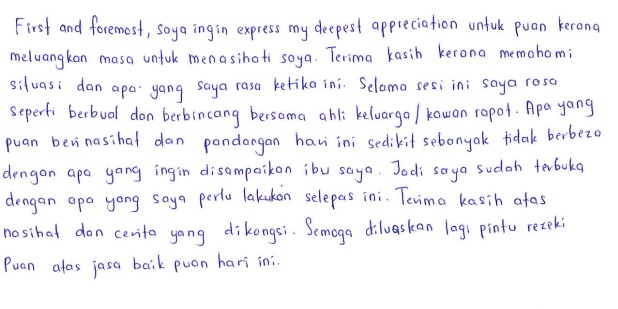 First and foremost, saya ingin express my deepest appreciation untuk puan kerana
meluangkan masa untuk menasihati saya. Terima kasih kerana memahami
situasi dan apa yang saya rasa ketika ini. Selama sesi ini saya rasa
seperti berbual dan berbincang bersama ahli keluarga / kawan rapat. Apa yang
puan beri nasihat dan pandangan hari ini sedikit sebanyak tidak berbeza
dengan apa yang ingin disampaikan ibu saya. Jadi saya sudah terbuka
dengan apa yang saya perlu lakukan selepas ini. Terima kasih atas
nasihat dan cerita yang dikongsi. Semoga diluaskan lagi pintu rezeki
Puan atas jasa baik puan hari ini.